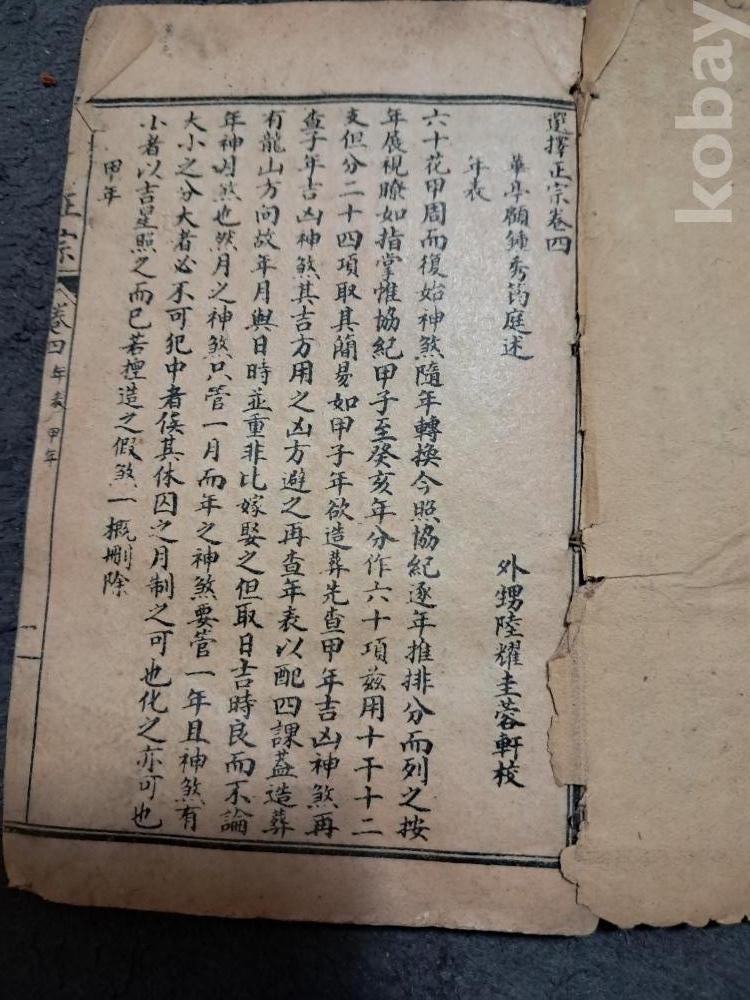 選擇正宗卷四
華亭顧鍾秀筠庭述
外甥陸耀圭蓉軒校
年表
六十花甲周而復始神煞隨年轉換今照協紀逐年推排分而列之按
年展視瞭如指掌惟協紀甲子至癸亥年分作六十項茲用十干十二
支但分二十四項取其簡易如甲子年欲造葬先查甲年吉凶神煞再
查子年吉凶神煞其吉方用之凶方避之再查年表以配四課蓋造葬
有龍山方向故年月與日時並重非比嫁娶之但取日吉時良而不論
年神凶煞也然月之神煞只管一月而年之神煞要管一年且神煞有
大小之分大者必不可犯中者俟其休囚之月制之可也化之亦可也
小者以吉星照之而已若揑造之假煞一概刪除
甲年
正宗
卷四
年表
甲年
一
kobay